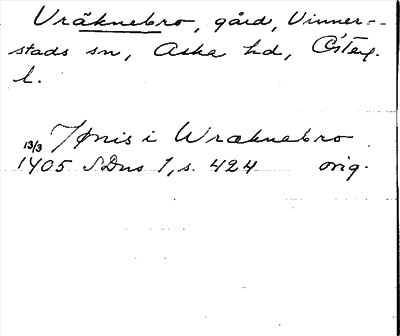 Vräknebro, gård, Vinner-
stads sn, Aska hd, Österg.
l.
13/3 Jønis i Wræknebro
1405 SDns 1, s. 424 orig.